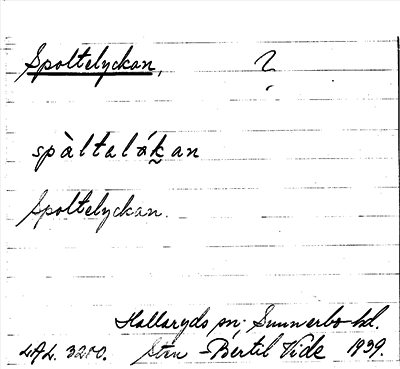 Spoltelyckan, ?
spàltalákan
Spoltelyckan.
Hallaryds sn, Sunnerbo hd.
LAL. 3280. Sten-Bertil Vide 1939.